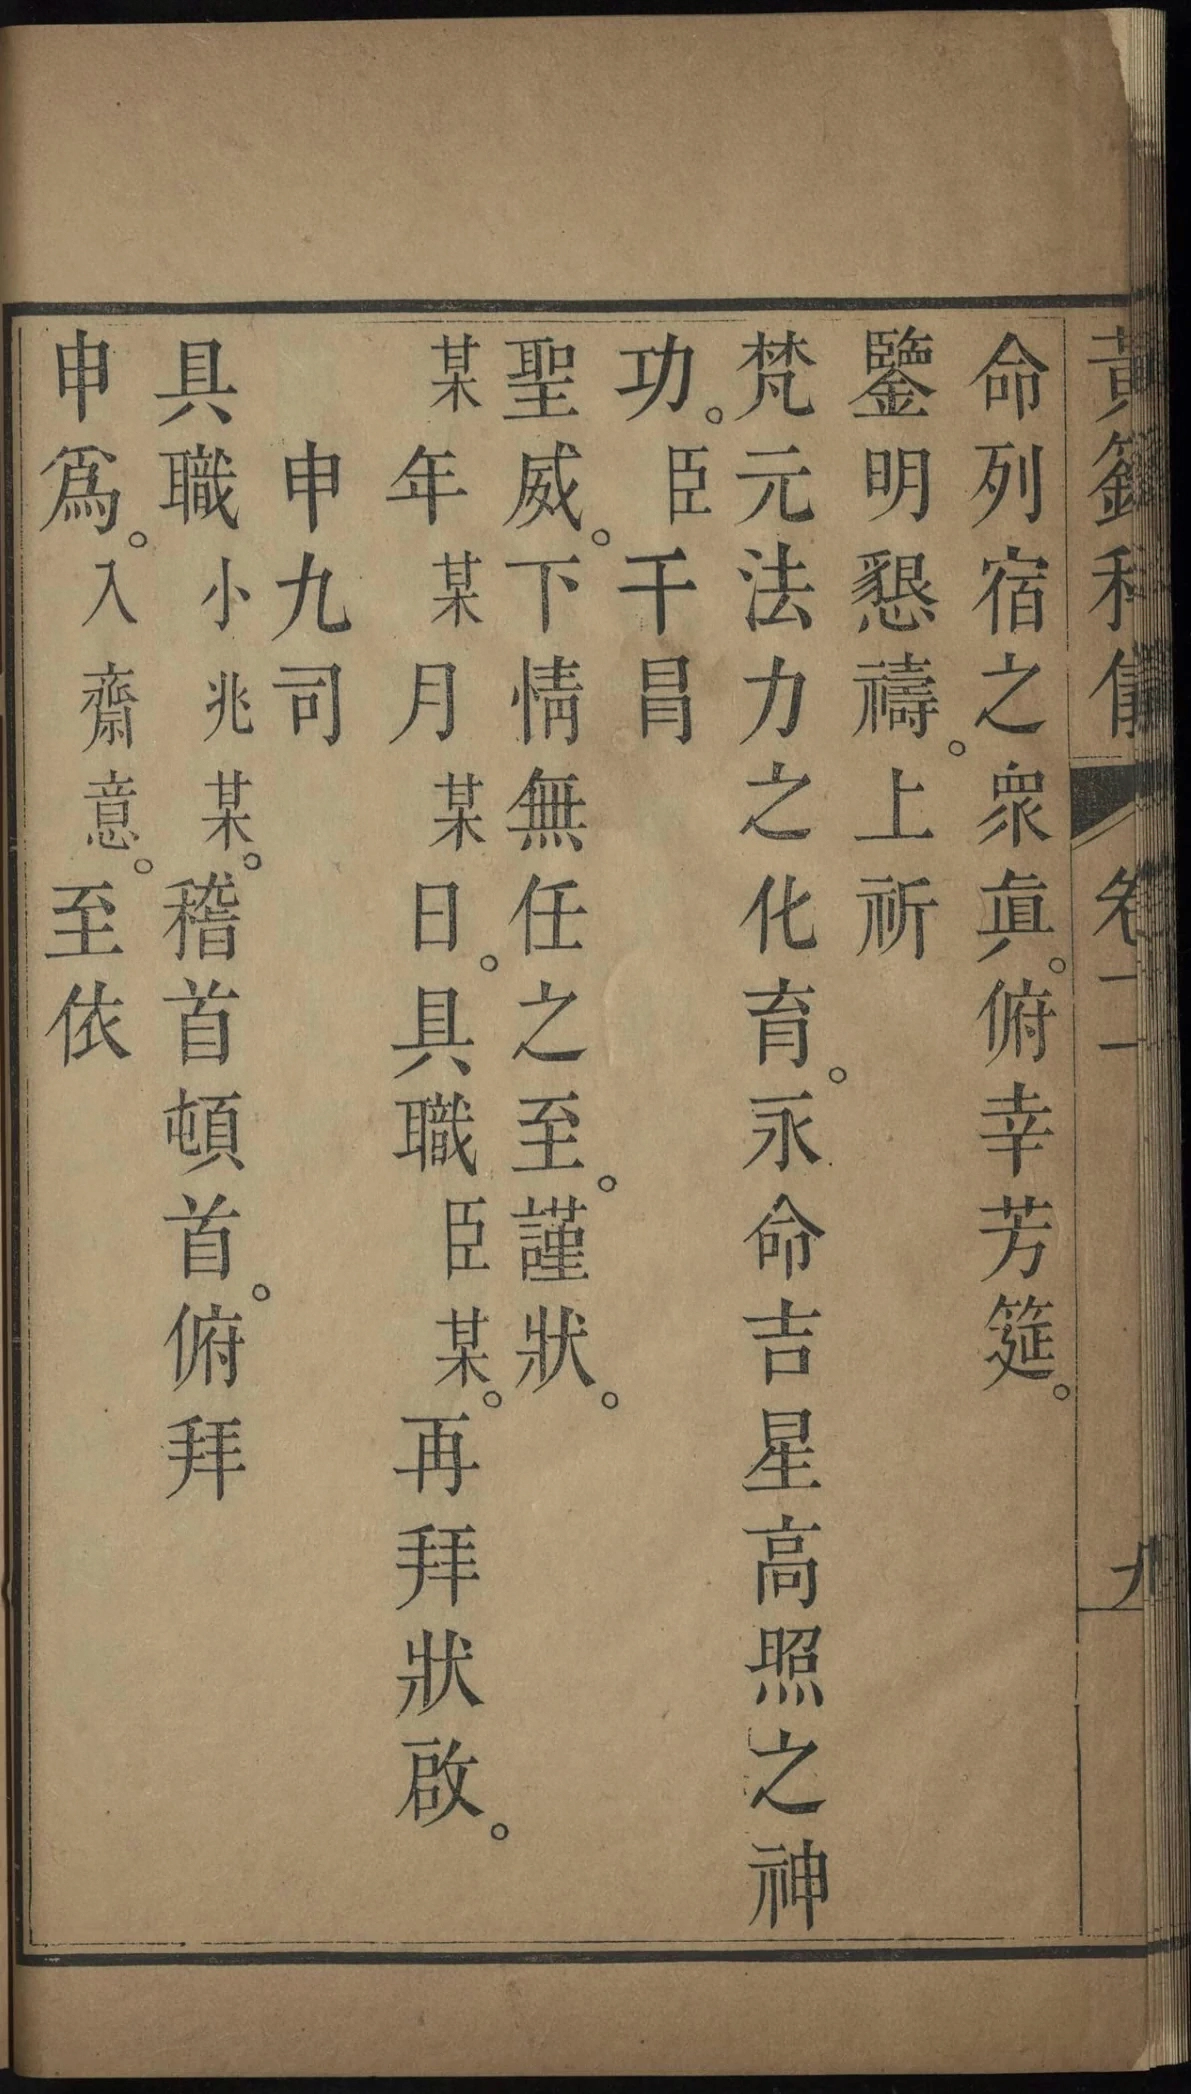 黃籙科儀 卷二 九
命列宿之衆眞。俯幸芳筵。
鑒明懇禱。上祈
梵元法力之化育。永命吉星高照之神
功。臣干冒
聖威。下情無任之至。謹狀。
某年某月某日。具職臣某。再拜狀啟。
申九司
具職小兆某。稽首頓首。俯拜
申爲。入齋意。至依